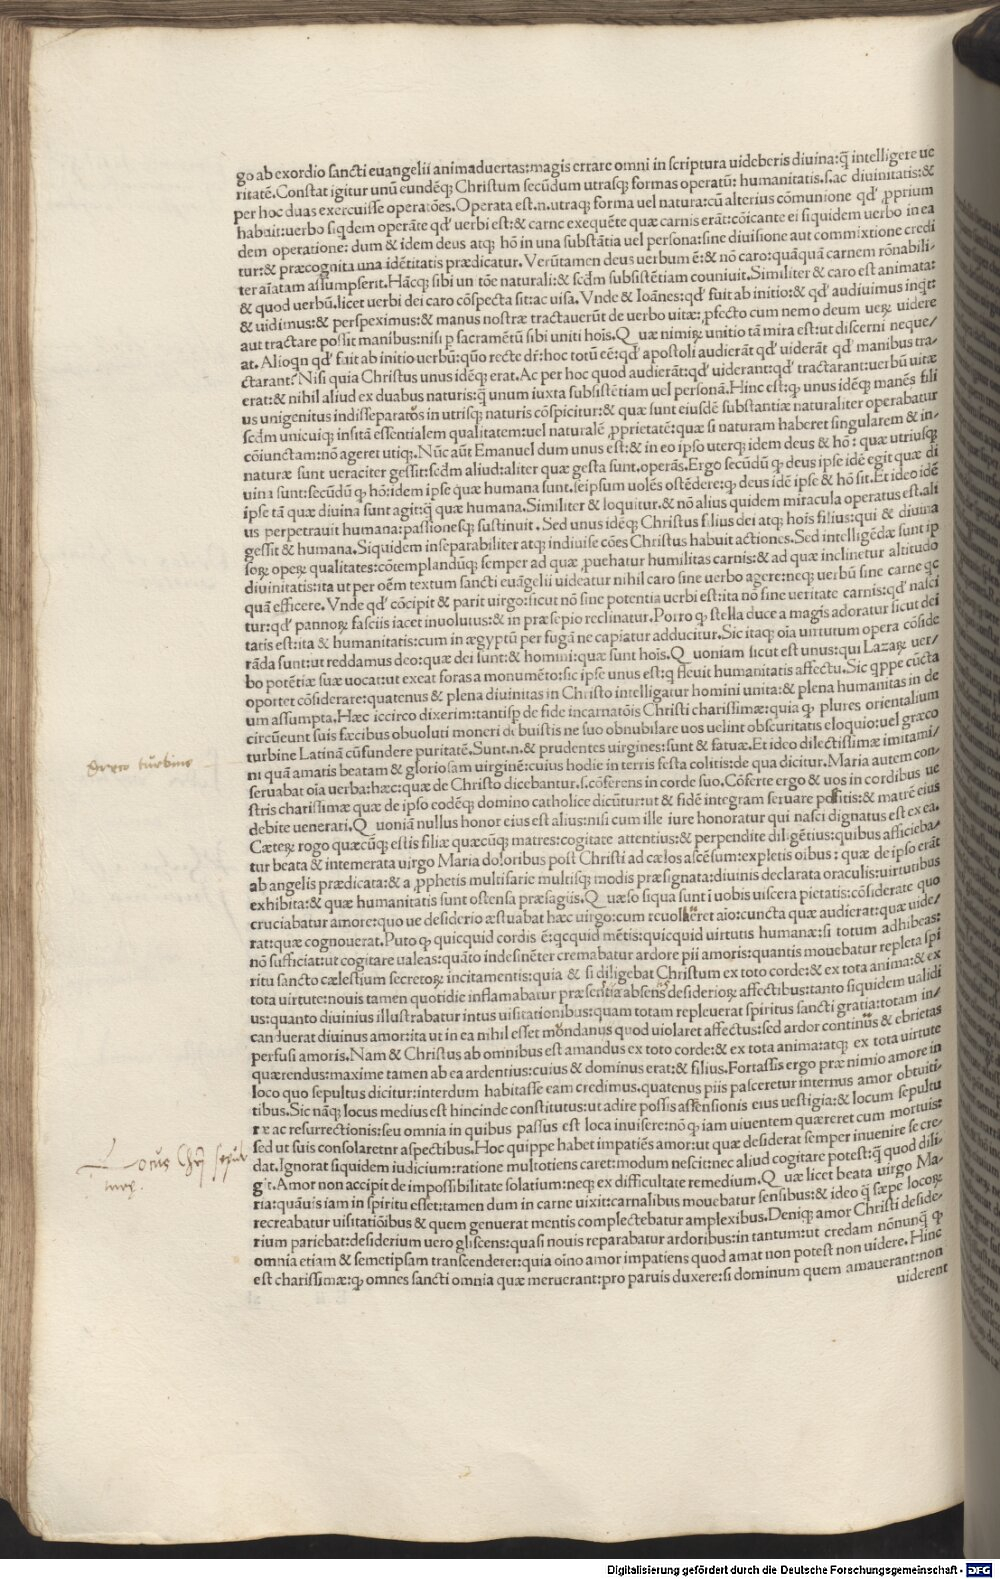 go ab exordio sancti euangelii animaduertas:magis errare omni in scriptura uideberis diuina:q̃ intelligere ue
ritatē.Constat igitur unū eundēq; Christum secūdum utrasq; formas operatū: humanitatis.s.ac diuinitatis:&
per hoc duas exercuisse operatōes.Operata est.n.utraq; forma uel natura:cū alterius cōmunione qd' ꝓprium
habuit:uerbo siqdem operāte qd' uerbi est:& carne exequēte quæ carnis erāt:cōicante ei siquidem uerbo in ea
dem operatione: dum & idem deus atq; hō in una substātia uel persona:sine diuisione aut commixtione credi
tur:& præcognita una idētitatis prædicatur. Verūtamen deus uerbum ē:& nō caro:quāquā carnem rōnabili-
ter aīatam assumpserit.Hācq; sibi un tōe naturali:& scdm subsistētiam couniuit.Similiter & caro est animata:
& quod uerbū.licet uerbi dei caro cōspecta sit:ac uisa. Vnde & Ioānes:qd' fuit ab initio:& qd' audiuimus inqt:
& uidimus:& perspeximus:& manus nostræ tractauerūt de uerbo uitæ:ꝓfecto cum nemo deum ueꝝ uidere
aut tractare possit manibus:nisi ꝑ sacramētū sibi uniti hoīs.Q uæ nimiꝝ unitio tā mira est:ut discerni neque/
at. Alioqn qd' fuit ab initio uerbū:quō recte dr̄:hoc totū eē:qd' apostoli audierāt qd' uiderāt qd' manibus tra-
ctarant? Nisi quia Christus unus idēq; erat.Ac per hoc quod audierāt:qd' uiderant:qd' tractarant:uerbū uitæ
erat:& nihil aliud ex duabus naturis:q̃ unum iuxta subsistētiam uel personā.Hinc est:ꝙ unus idēq; manēs fili
us unigenitus indisseparatos in utrisq; naturis cōspicitur:& quæ sunt eiusdē substantiæ naturaliter operabatur
scdm unicuiq; insitā essentialem qualitatem:uel naturalē ꝓprietatē:quæ si naturam haberet singularem & in-
cōiunctam:nō ageret utiq;.Nūc aūt Emanuel dum unus est:& in eo ipso uterq; idem deus & hō: quæ utriusq;
naturæ sunt ueraciter gessit:scdm aliud:aliter quæ gesta sunt.operās.Ergo secūdū ꝙ deus ipse idē egit quæ di
uina sunt:secūdū ꝙ hō:idem ipse quæ humana sunt.seipsum uolēs ostēdere:ꝙ deus idē ipse & hō sit.Et ideo idē
ipse tā quæ diuina sunt agit:q̃ quæ humana.Similiter & loquitur.& nō alius quidem miracula operatus est.ali
us perpetrauit humana:passionesq; sustinuit. Sed unus idēq; Christus filius dei atq; hoīs filius:qui & diuina
gessit & humana.Siquidem inseparabiliter atq; indiuise cōes Christus habuit actiones.Sed intelligēdæ sunt ip
soꝝ opeꝝ qualitates:cōtemplandūq; semper ad quæ ꝓuehatur humilitas carnis:& ad quæ inclinetur altitudo
diuinitatis:ita ut per oēm textum sancti euāgelii uideatur nihil caro sine uerbo agere:neq; uerbū sine carne qc
quā efficere. Vnde qd' cōcipit & parit uirgo:sicut nō sine potentia uerbi est:ita nō sine ueritate carnis:qd' nasci
tur:qd' pannoꝝ fasciis iacet inuolutus:& in præsepio reclinatur.Porro ꝙ stella duce a magis adoratur sicut dei
tatis est:ita & humanitatis:cum in ægyptū per fugā ne capiatur adducitur.Sic itaq; oīa uirtutum opera cōside
rāda sunt:ut reddamus deo:quæ dei sunt:& homini:quæ sunt hoīs.Q uoniam sicut est unus:qui Lazaꝝ uer-
bo potētiæ suæ uocat:ut exeat foras a monumēto:sic ipse unus est:q fleuit humanitatis affectu.Sic qppe cūcta
oportet cōsiderare:quatenus & plena diuinitas in Christo intelligatur homini unita:& plena humanitas in de
um assumpta.Hæc iccirco dixerim:tantisꝑ de fide incarnatōis Christi charissimæ:quia ꝙ plures orientalium
circūeunt suis fæcibus obuoluti moneri di buistis ne suo obnubilare uos uelint obscuritatis eloquio:uel græco
turbine Latinā cūfundere puritatē.Sunt.n.& prudentes uirgines:sunt & fatuæ.Et ideo dilectissimæ imitami/
ni quā amaris beatam & gloriosam uirginē:cuius hodie in terris festa colitis:de qua dicitur.Maria autem con-
seruabat oīa uerba:hæc:quæ de Christo dicebantur.s.cōferens in corde suo.Cōferte ergo & uos in cordibus ue
stris charissimæ quæ de ipso eodēq; domino catholice dicūtur:ut & fidē integram seruare possitis:& matrē eius
debite uenerari.Q uoniā nullus honor eius est alius:nisi cum ille iure honoratur qui nasci dignatus est ex ea.
Cæteꝝ rogo quæcūq; estis filiæ quæcūq; matres:cogitate attentius:& perpendite diligētius:quibus afficieba-
tur beata & intemerata uirgo Maria doloribus post Christi ad cælos ascēsum:expletis oībus: quæ de ipso erāt
ab angelis prædicata:& a ꝓphetis multifarie multisq; modis præsignata:diuinis declarata oraculis:uirtutibus
exhibita:& quæ humanitatis sunt ostensa præsagiis.Q uæso siqua sunt ī uobis uiscera pietatis:cōsiderate quo
cruciabatur amore:quo ue desiderio æstuabat hæc uirgo:cum reuolueret aio:cuncta quæ audierat:quæ uide/
rat:quæ cognouerat.Puto ꝙ quicquid cordis ē:qcquid mētis:quicquid uirtutis humanæ:si totum adhibeas:
nō sufficiat:ut cogitare ualeas:quāto indesinēter cremabatur ardore pii amoris:quantis mouebatur repleta spi
ritu sancto cælestium secretoꝝ incitamentis:quia & si diligebat Christum ex toto corde:& ex tota anima:& ex
tota uirtute:nouis tamen quotidie inflamabatur præsentia absens desiderioꝝ affectibus:tanto siquidem ualidi
us:quanto diuinius illustrabatur intus uisitationibus:quam totam repleuerat spiritus sancti gratia:totam in/
canduerat diuinus amor:ita ut in ea nihil esset mōndanus quod uiolaret affectus:sed ardor continuus & ebrietas
perfusi amoris.Nam & Christus ab omnibus est amandus ex toto corde:& ex tota anima:atq; ex tota uirtute
quærendus:maxime tamen ab ea ardentius:cuius & dominus erat:& filius.Fortassis ergo præ nimio amore in
loco quo sepultus dicitur:interdum habitasse eam credimus.quatenus piis pasceretur internus amor obtuiti-
tibus.Sic nāq; locus medius est hincinde constitutus:ut adire possis assensionis eius uestigia:& locum sepultu
ræ ac resurrectionis:seu omnia in quibus passus est loca inuisere:nō ꝙ iam uiuentem quæreret cum mortuis:
sed ut suis consolaretnr aspectibus.Hoc quippe habet impatiēs amor:ut quæ desiderat semper inuenire se cre-
dat.Ignorat siquidem iudicium:ratione multotiens caret:modum nescit:nec aliud cogitare potest:q̃ quod dili-
git.Amor non accipit de impossibilitate solatium:neq; ex difficultate remedium.Q uæ licet beata uirgo Ma-
ria:quāuis iam in spiritu esset:tamen dum in carne uixit:carnalibus mouebatur sensibus:& ideo q̃ sæpe locoꝝ
recreabatur uisitatiōibus & quem genuerat mentis complectebatur amplexibus.Deniq; amor Christi deside-
rium pariebat:desiderium uero gliscens:quasi nouis reparabatur ardoribus:in tantum:ut credam nōnunq̃ ꝙ
omnia etiam & semetipsam transcenderet:quia oīno amor impatiens quod amat non potest non uidere. Hinc
est charissimæ:ꝙ omnes sancti omnia quæ meruerant:pro paruis duxere:si dominum quem amauerant:non
uiderent
Greco turbine
Locus Chri sepul
turæ.
Digitalisierung gefördert durch die Deutsche Forschungsgemeinschaft - DFG